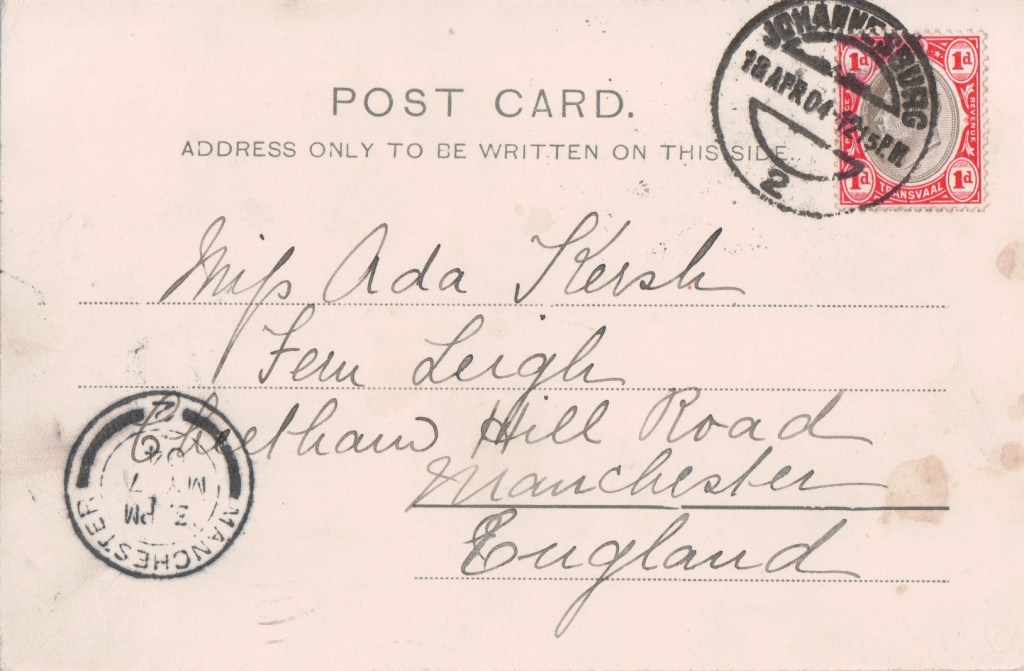 POST CARD.
ADDRESS ONLY TO BE WRITTEN ON THIS SIDE.
JOHANNESBURG
18 APR 04 · 12·15 PM
2
1d 1d
POSTAGE REVENUE
1d TRANSVAAL 1d
Miss Ada Kersh
Fern Leigh
Cheetham Hill Road
Manchester
England
MANCHESTER
3. PM
MY 7
04
2